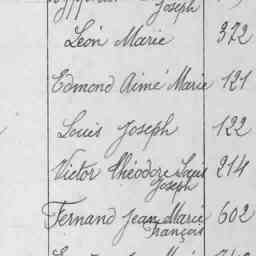 Joseph
Léon Marie 372
Edmond Aimé Marie 121
Louis Joseph 122
Victor Théodore Louis 214
Joseph
Fernand Jean Marie 602
François